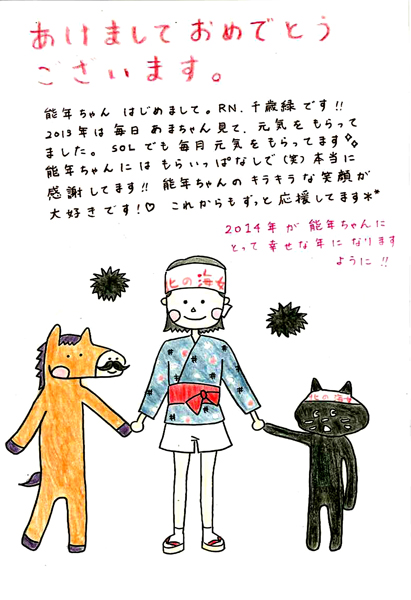 あけましておめでとう
ございます。
能年ちゃん はじめまして。RN.千歳緑です!!
2013年は毎日あまちゃん見て、元気をもらって
ました。SOLでも毎月元気をもらってます
能年ちゃんにはもらいっぱなしで(笑)本当に
感謝してます!! 能年ちゃんのキラキラな笑顔が
大好きです!♡ これからもずっと応援してます**
2014年が能年ちゃんに
とって幸せな年になります
ように!!
北の海女
北の海女